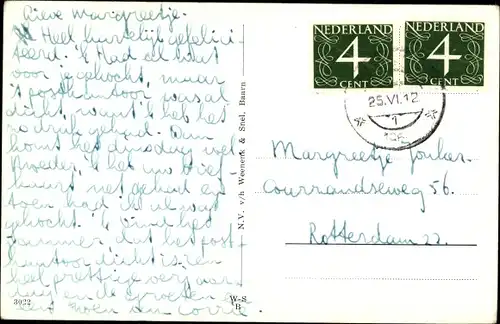 Lieve Margreetje.
Heel hartelijk gefelici
teerd. 'k Had al kaart
voor je gekocht, maar
't postkantoor was al
dicht, want 'k heb het
zo druk gehad. Dan
komt het dinsdag wel
'k heb uw brief
kaart net gehad en
toen had ik al wat
gekocht. 'k vind het
jammer, dat het post-
kantoor dicht is. en
heel prettige verjaars
dag en de groeten en
een zoen van Corrie
3922
N.V. v/h Weenenk & Snel, Baarn
W-S
B
NEDERLAND
4
CENT
NEDERLAND
4
CENT
25.VI.12
1
Margreetje
Courzandseweg 56.
Rotterdam 22.